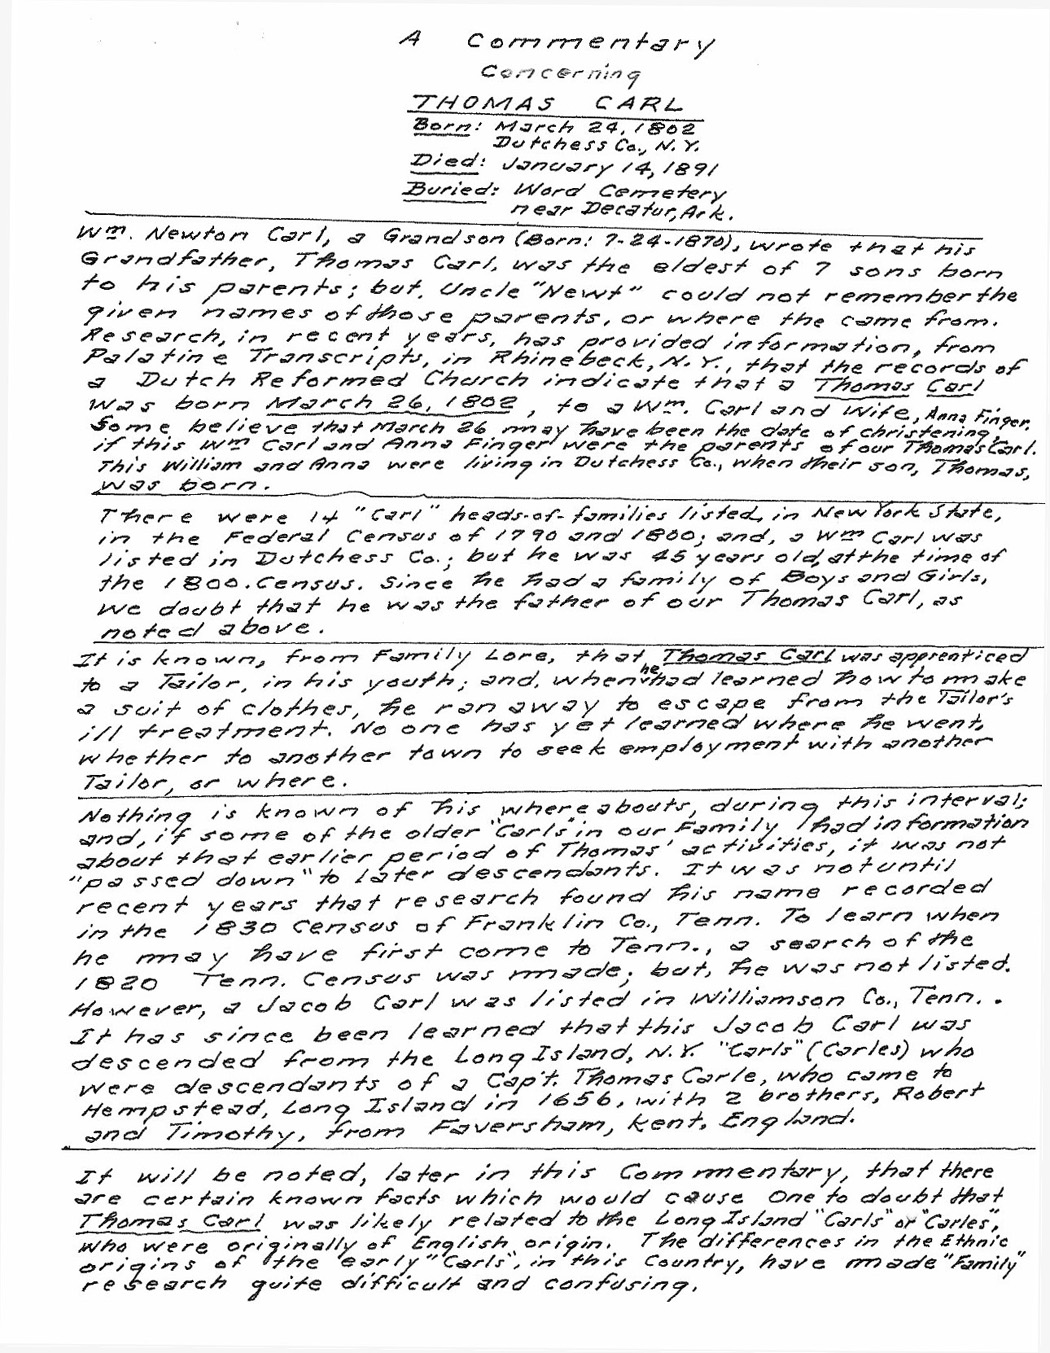 A Commentary
Concerning
THOMAS CARL
Born: March 24, 1802
Dutchess Co., N. Y.
Died: January 14, 1891
Buried: Word Cemetery
near Decatur, Ark.
Wm. Newton Carl, a Grandson (Born: 7-24-1870), wrote that his
Grandfather, Thomas Carl, was the eldest of 7 sons born
to his parents; but, Uncle "Newt" could not remember the
given names of those parents, or where the came from.
Research, in recent years, has provided information, from
Palatine Transcripts, in Rhinebeck, N. Y., that the records of
a Dutch Reformed Church indicate that a Thomas Carl
was born March 26, 1802, to a Wm. Carl and wife, Anna Finger.
Some believe that March 26 may have been the date of christening,
if this Wm Carl and Anna Finger were the parents of our Thomas Carl.
This William and Anna were living in Dutchess Co., when their son, Thomas,
was born.
There were 14 "Carl" heads-of-families listed, in New York State,
in the Federal Census of 1790 and 1800; and, a Wm Carl was
listed in Dutchess Co.; but he was 45 years old, at the time of
the 1800. Census. Since he had a family of Boys and Girls,
we doubt that he was the father of our Thomas Carl, as
noted above.
It is known, from Family Lore, that Thomas Carl was apprenticed
to a Tailor, in his youth; and, when he had learned how to make
a suit of clothes, he ran away to escape from the Tailor's
ill treatment. No one has yet learned where he went,
whether to another town to seek employment with another
Tailor, or where.
Nothing is known of his whereabouts, during this interval;
and, if some of the older "Carls" in our Family had information
about that earlier period of Thomas' activities, it was not
"passed down" to later descendants. It was not until
recent years that research found his name recorded
in the 1830 Census of Franklin Co., Tenn. To learn when
he may have first come to Tenn., a search of the
1820 Tenn. Census was made; but, he was not listed.
However, a Jacob Carl was listed in Williamson Co., Tenn. .
It has since been learned that this Jacob Carl was
descended from the Long Island, N.Y. "Carls" (Carles) who
were descendants of a Cap't. Thomas Carle, who came to
Hempstead, Long Island in 1656, with 2 brothers, Robert
and Timothy, from Faversham, Kent, England.
It will be noted, later in this Commentary, that there
are certain known facts which would cause one to doubt that
Thomas Carl was likely related to the Long Island "Carls" or "Carles",
who were originally of English origin. The differences in the Ethnic
origins of the early "Carls", in this Country, have made "Family"
research quite difficult and confusing.